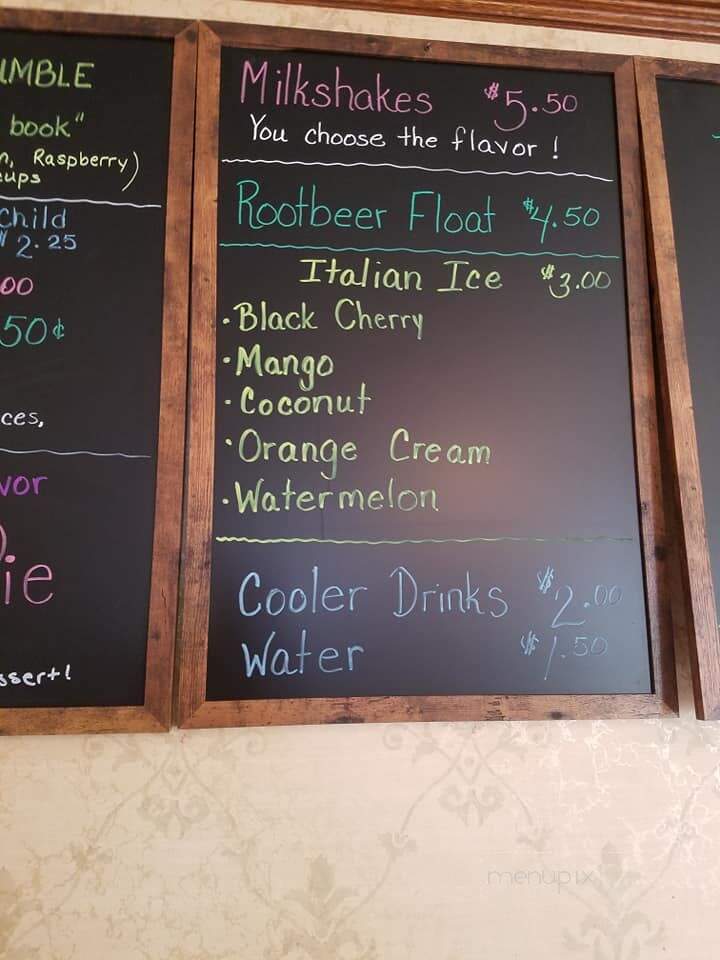 UMBLE
book"
n, Raspberry)
cups
Child
$2.25
00
50¢
ces,
vor
Pie
ssert!
Milkshakes $5.50
You choose the flavor !
Rootbeer Float $4.50
Italian Ice $3.00
• Black Cherry
• Mango
• Coconut
• Orange Cream
• Watermelon
Cooler Drinks $2.00
Water $1.50
menupix